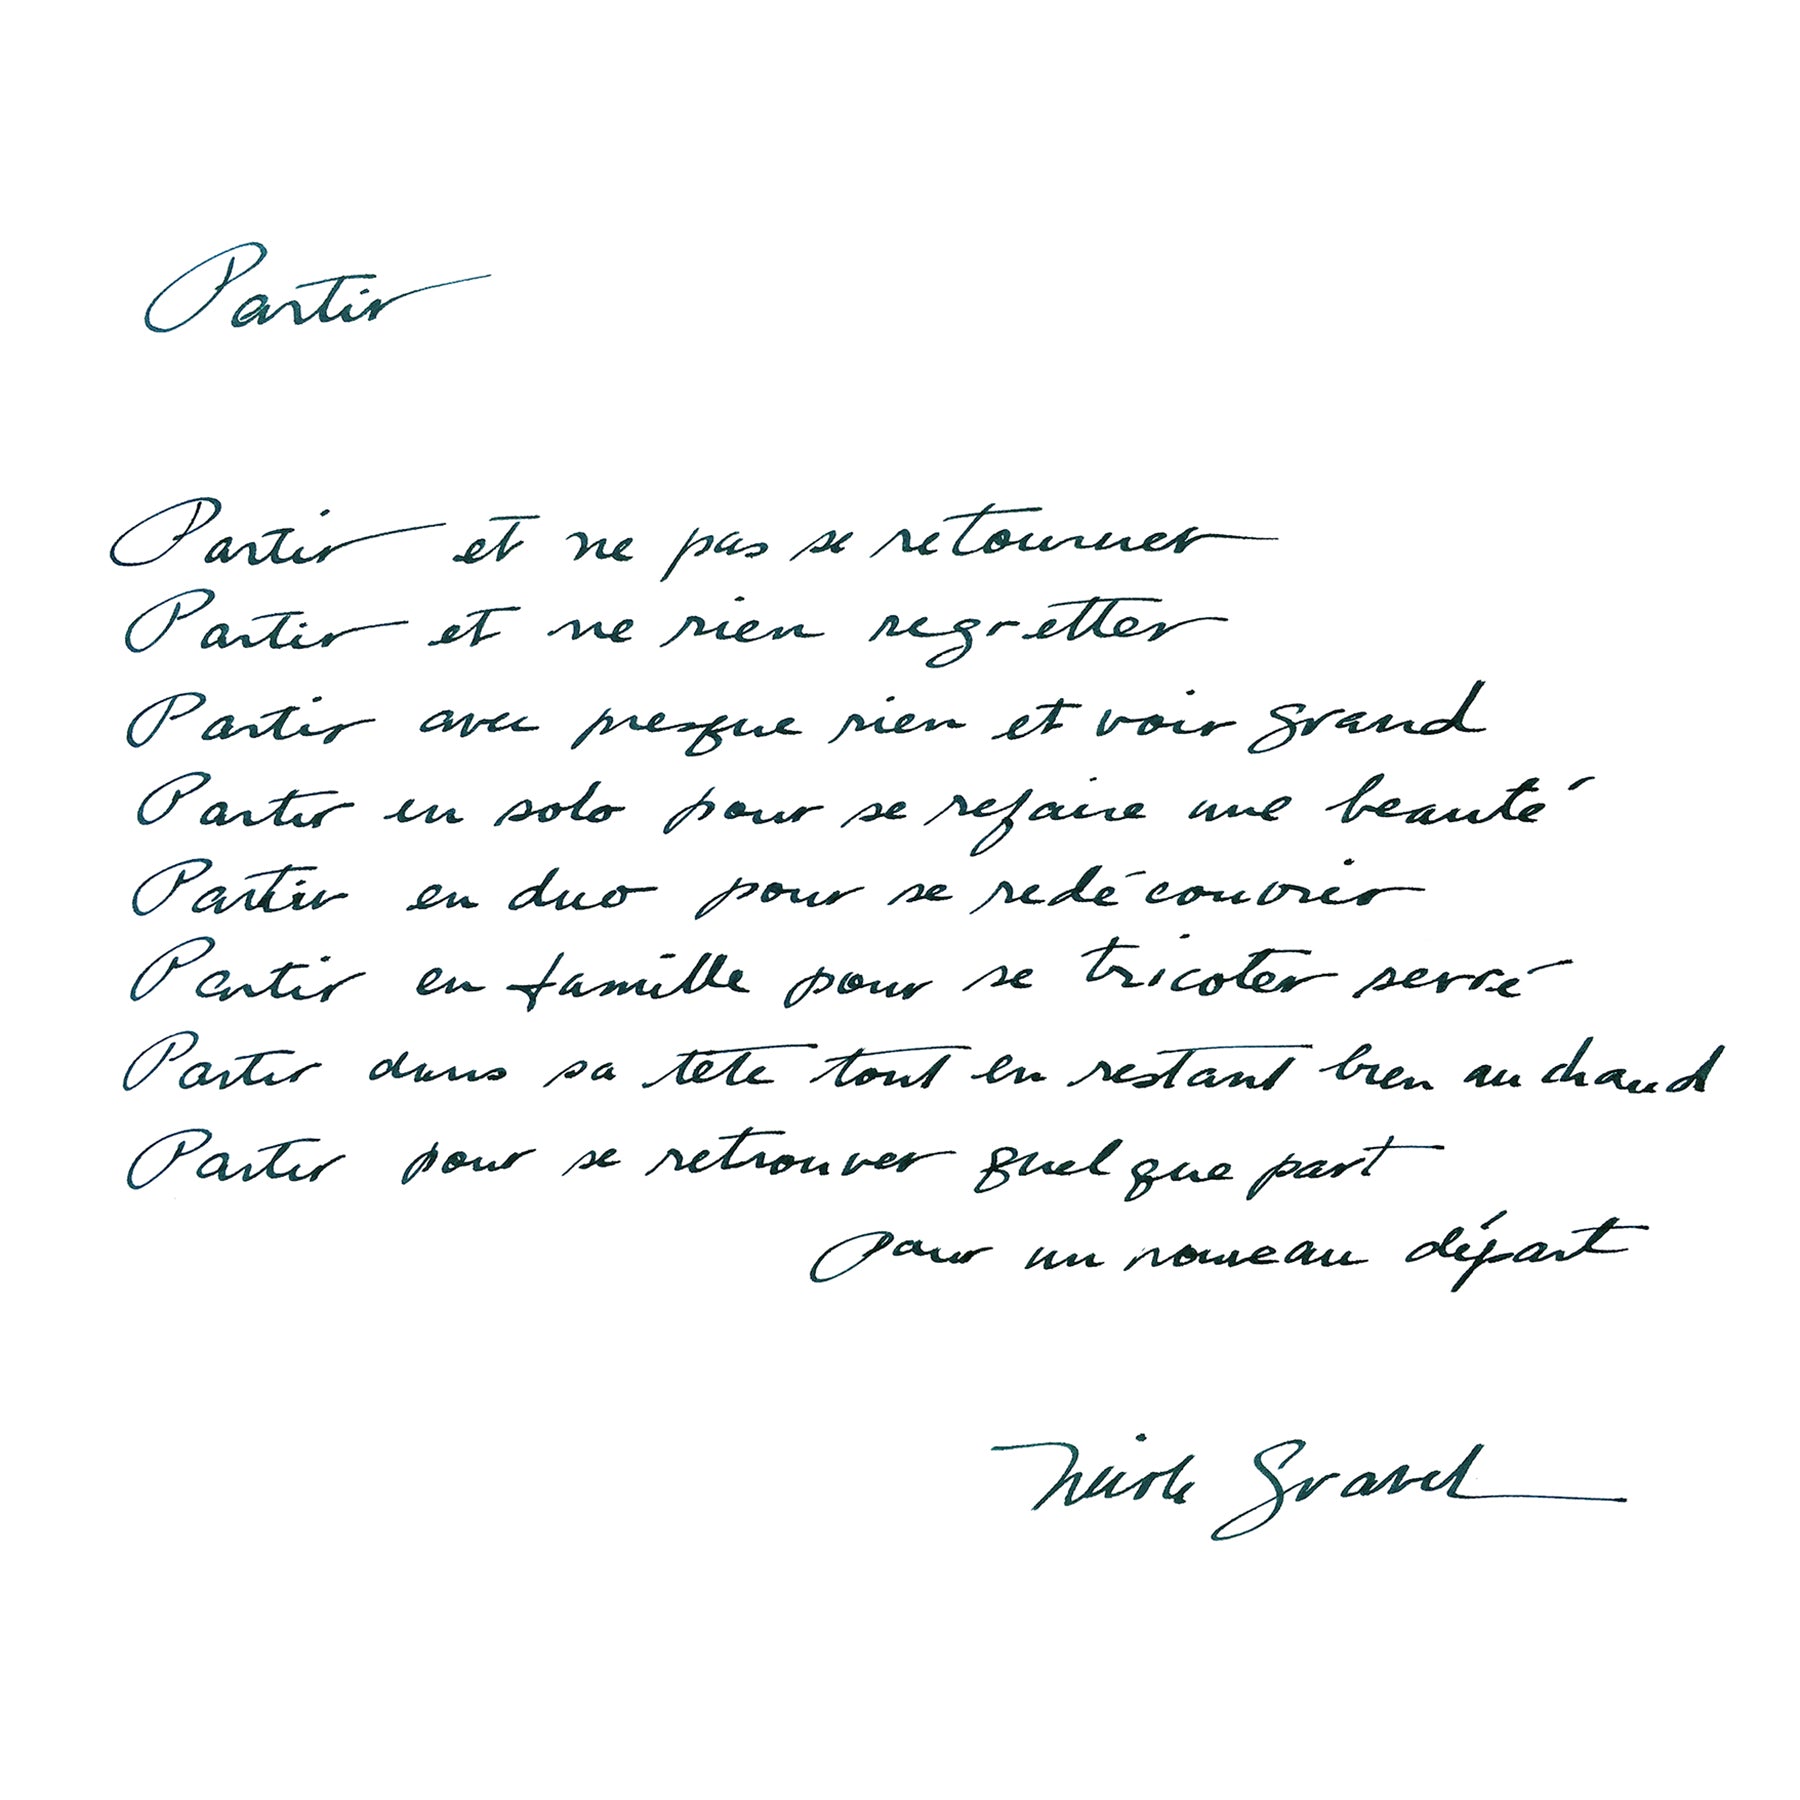 Partir
Partir et ne pas se retourner
Partir et ne rien regretter
Partir avec presque rien et voir grand
Partir en solo pour se refaire une beauté
Partir en duo pour se redécouvrir
Partir en famille pour se tricoter serré
Partir dans sa tete tout en restant bien au chaud
Partir pour se retrouver quelque part
pour un nouveau départ
Nicole Gravel